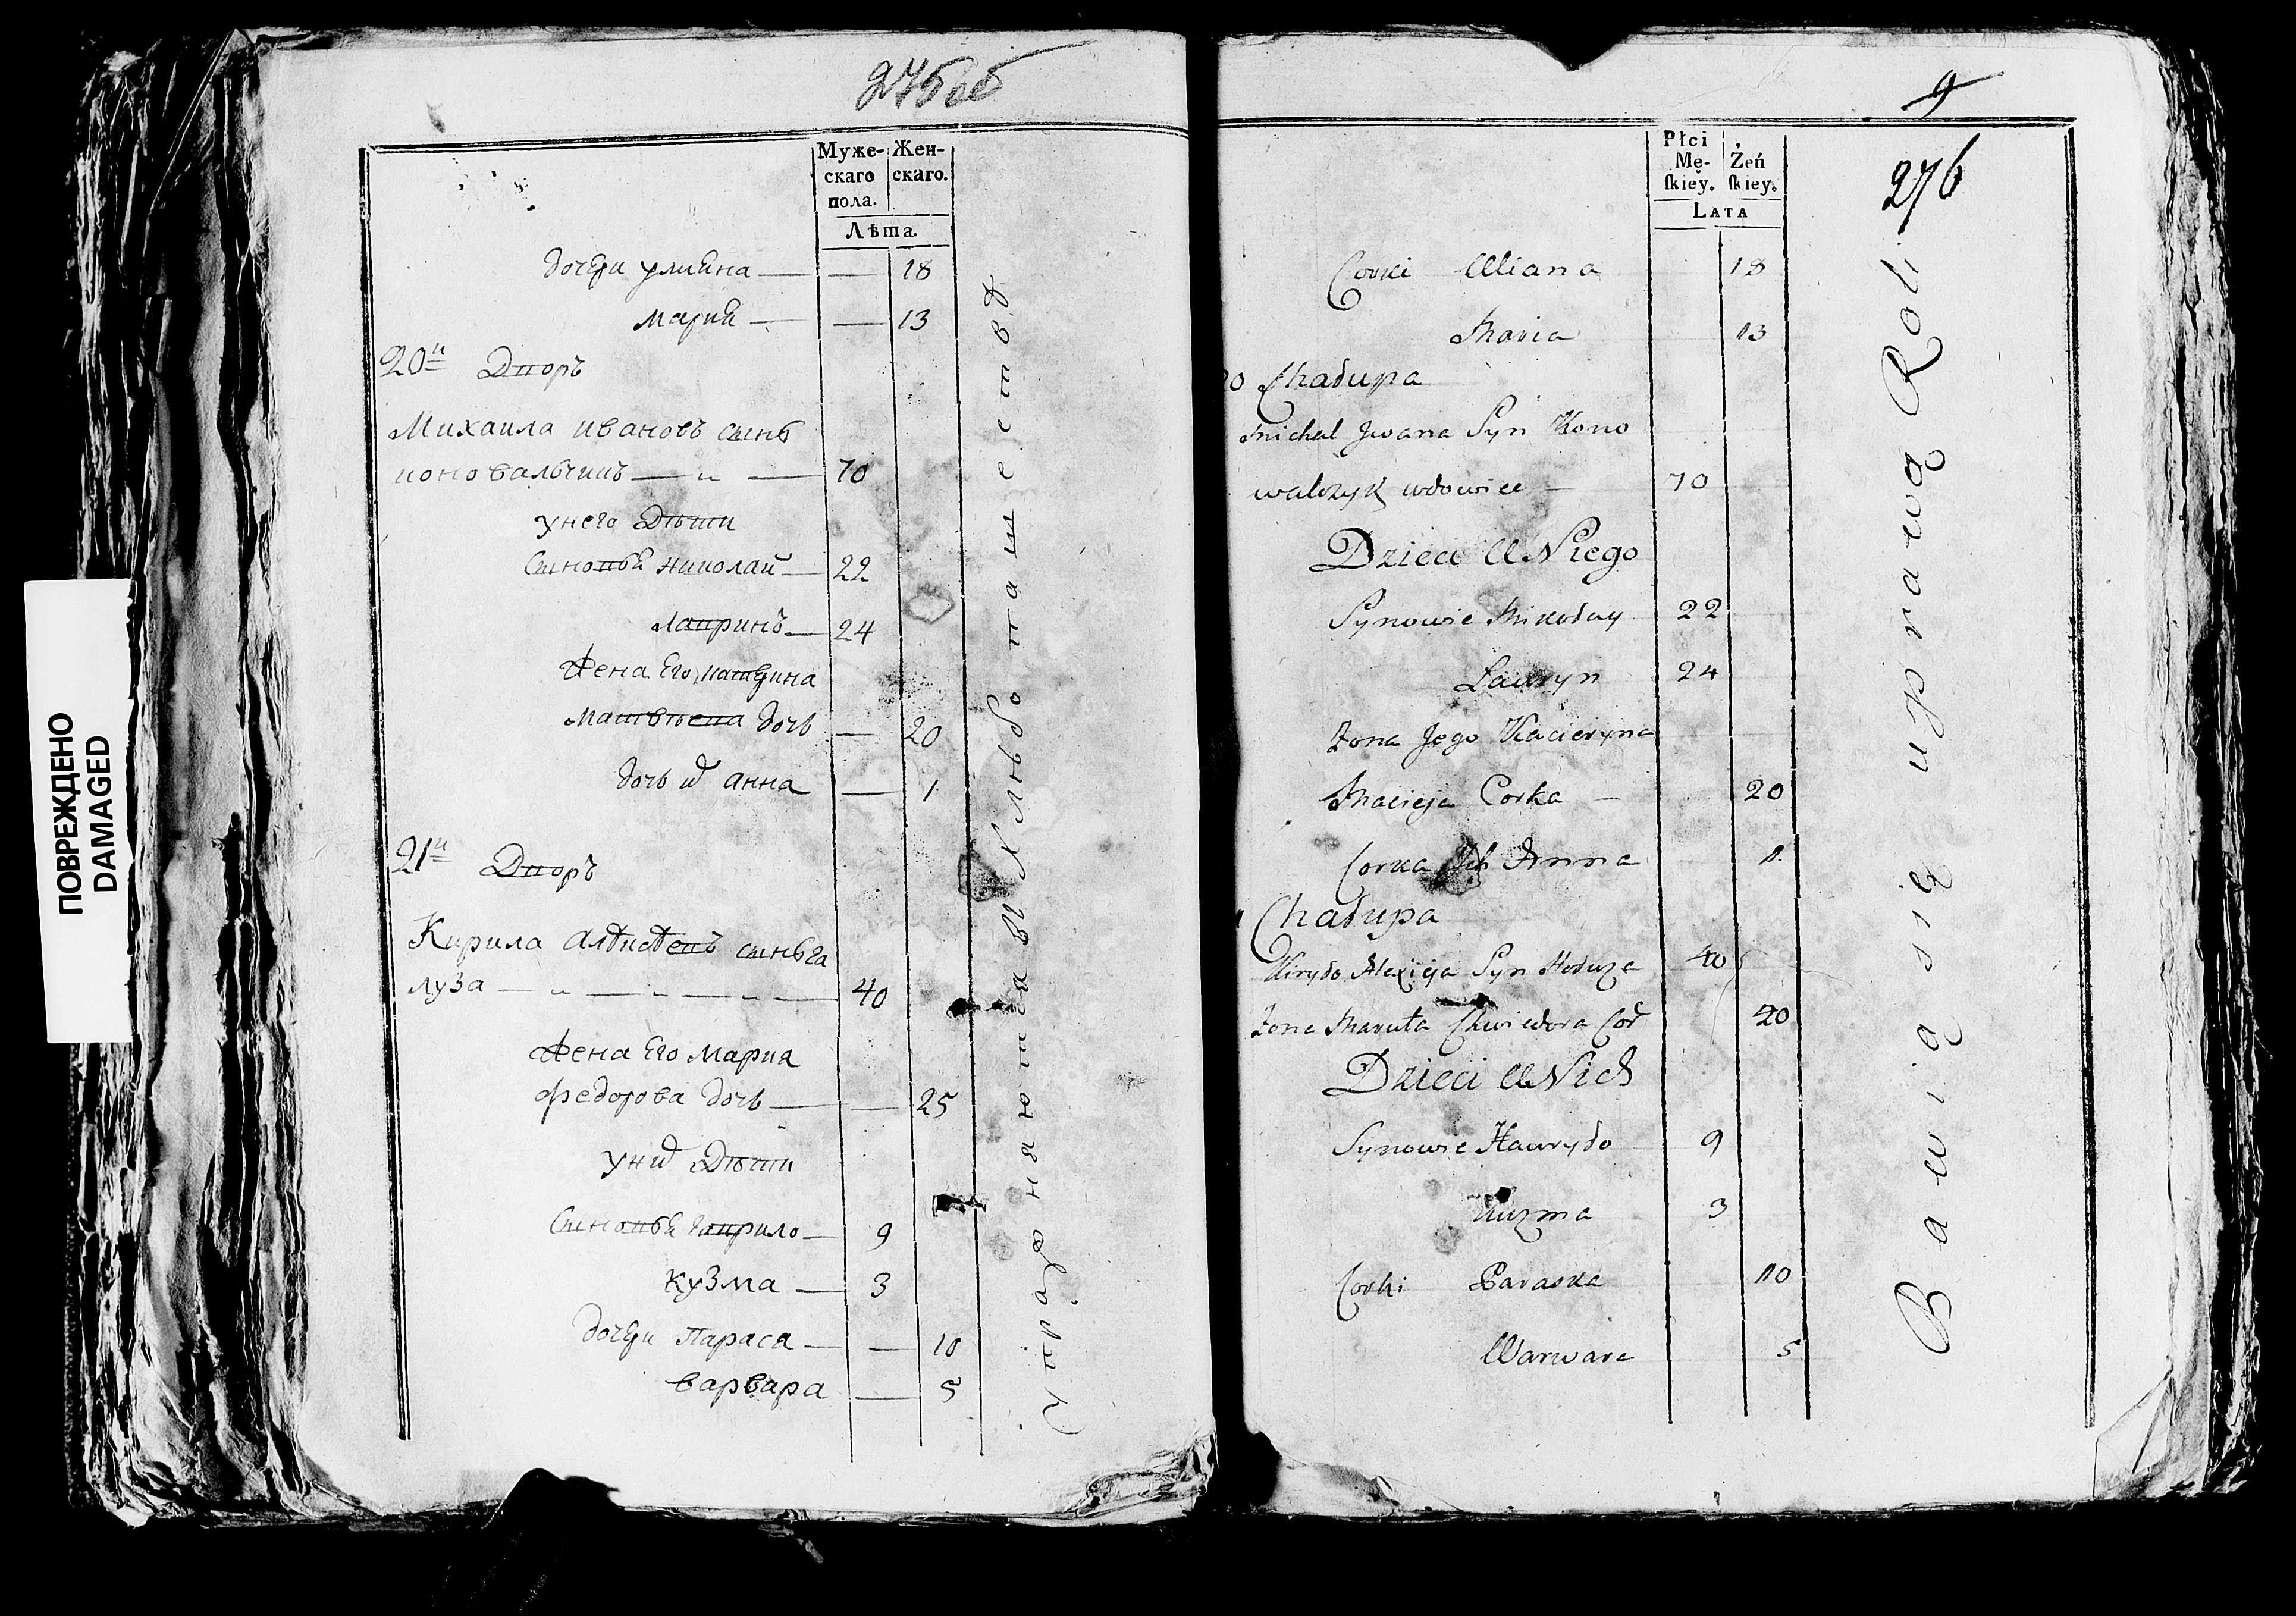 275об
Муже-
скаго
пола.
Жен-
скаго.
Лѣта.
дочери улиана — — 18
мария — — 13
20й Дворъ
Михаила ивановъ сынъ
коновальчикъ — „ — 70
у него Дѣти
Сыновья николай — 22
лавринъ — 24
Жена Его катерина
матвѣева дочь — 20
дочь их анна — 1
21й Дворъ
Кирила алексеевъ сынъ га
луза — „ — „ — „ — 40
Жена Его мария
федорова дочь — — 25
у них Дѣти
Сыновья гаврило — 9
кузма — 3
дочери Параса — — 10
варвара — 5
Упражняются в хлѣбопашествѣ
ПОВРЕЖДЕНО
DAMAGED
9
276
Płci
Mę-
skiey.
Żeń
skiey.
LATA
Corki Uliana 18
Maria 13
20 Chałupa
Michał Jwana Syn Kono
walczyk wdowiec — 70
Dzieci U Niego
Synowie Mikołay 22
Lawryn 24
Zona Jego Kacieryna
Macieja Corka — 20
Corka Ich Anna 1.
Chałupa
Kiryło Alexieja Syn Hołuza 40
Zona Maruta Chwiedora Cor 20
Dzieci U Nich
Synowie Hawryło 9
Kuzma 3
Corki Paraska 10
Warwara 5
Bawią się uprawą Roli